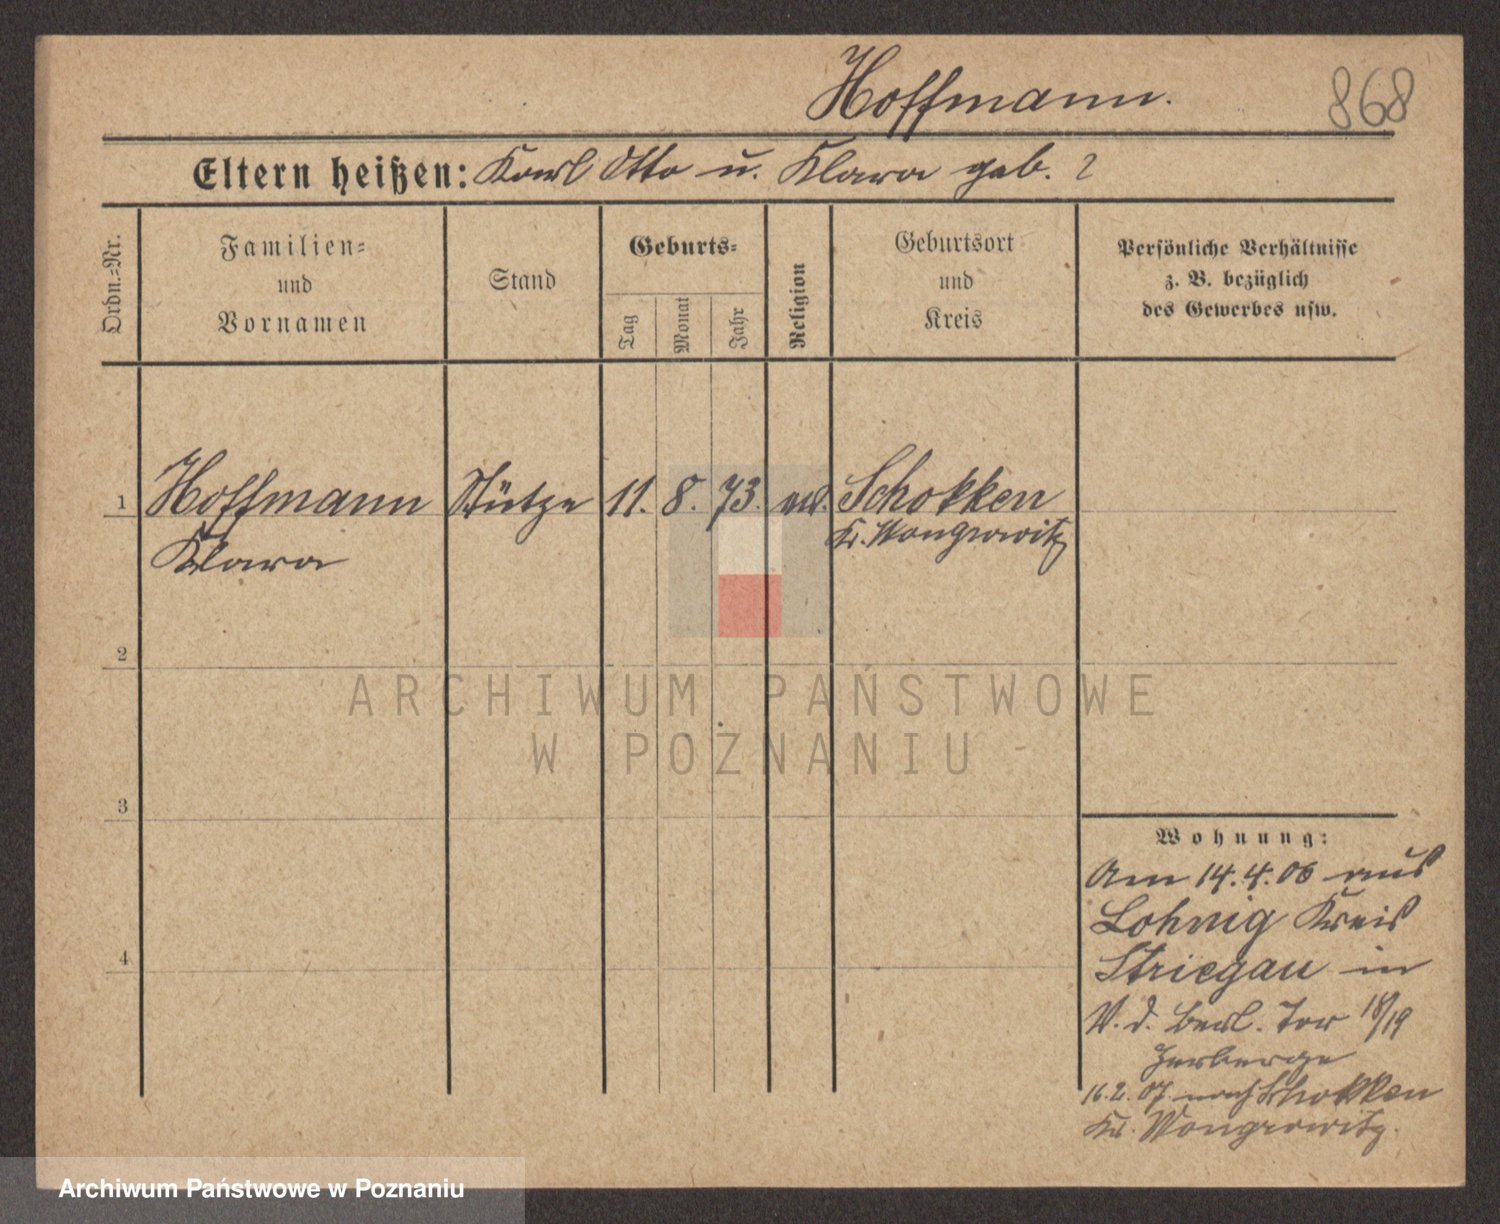 Hoffmann.
868
Eltern heißen: Karl Otto u. Klara geb. ?
Ordn.=Nr.
Familien=
und
Vornamen
Stand
Geburts=
Tag
Monat
Jahr
Religion
Geburtsort
und
Kreis
Persönliche Verhältnisse
z. B. bezüglich
des Gewerbes usw.
1 Hoffmann Stütze 11. 8. 73. Schokken
Klara Kr. Wongrowitz
2
3
4
ARCHIWUM PAŃSTWOWE
W POZNANIU
Wohnung:
Am 14.4.06 aus
Lohnig Kreis
Striegau in
V. d. Berl. Tor 18/19
Herberge
16.2.07 nach Schokken
Kr. Wongrowitz.
Archiwum Państwowe w Poznaniu